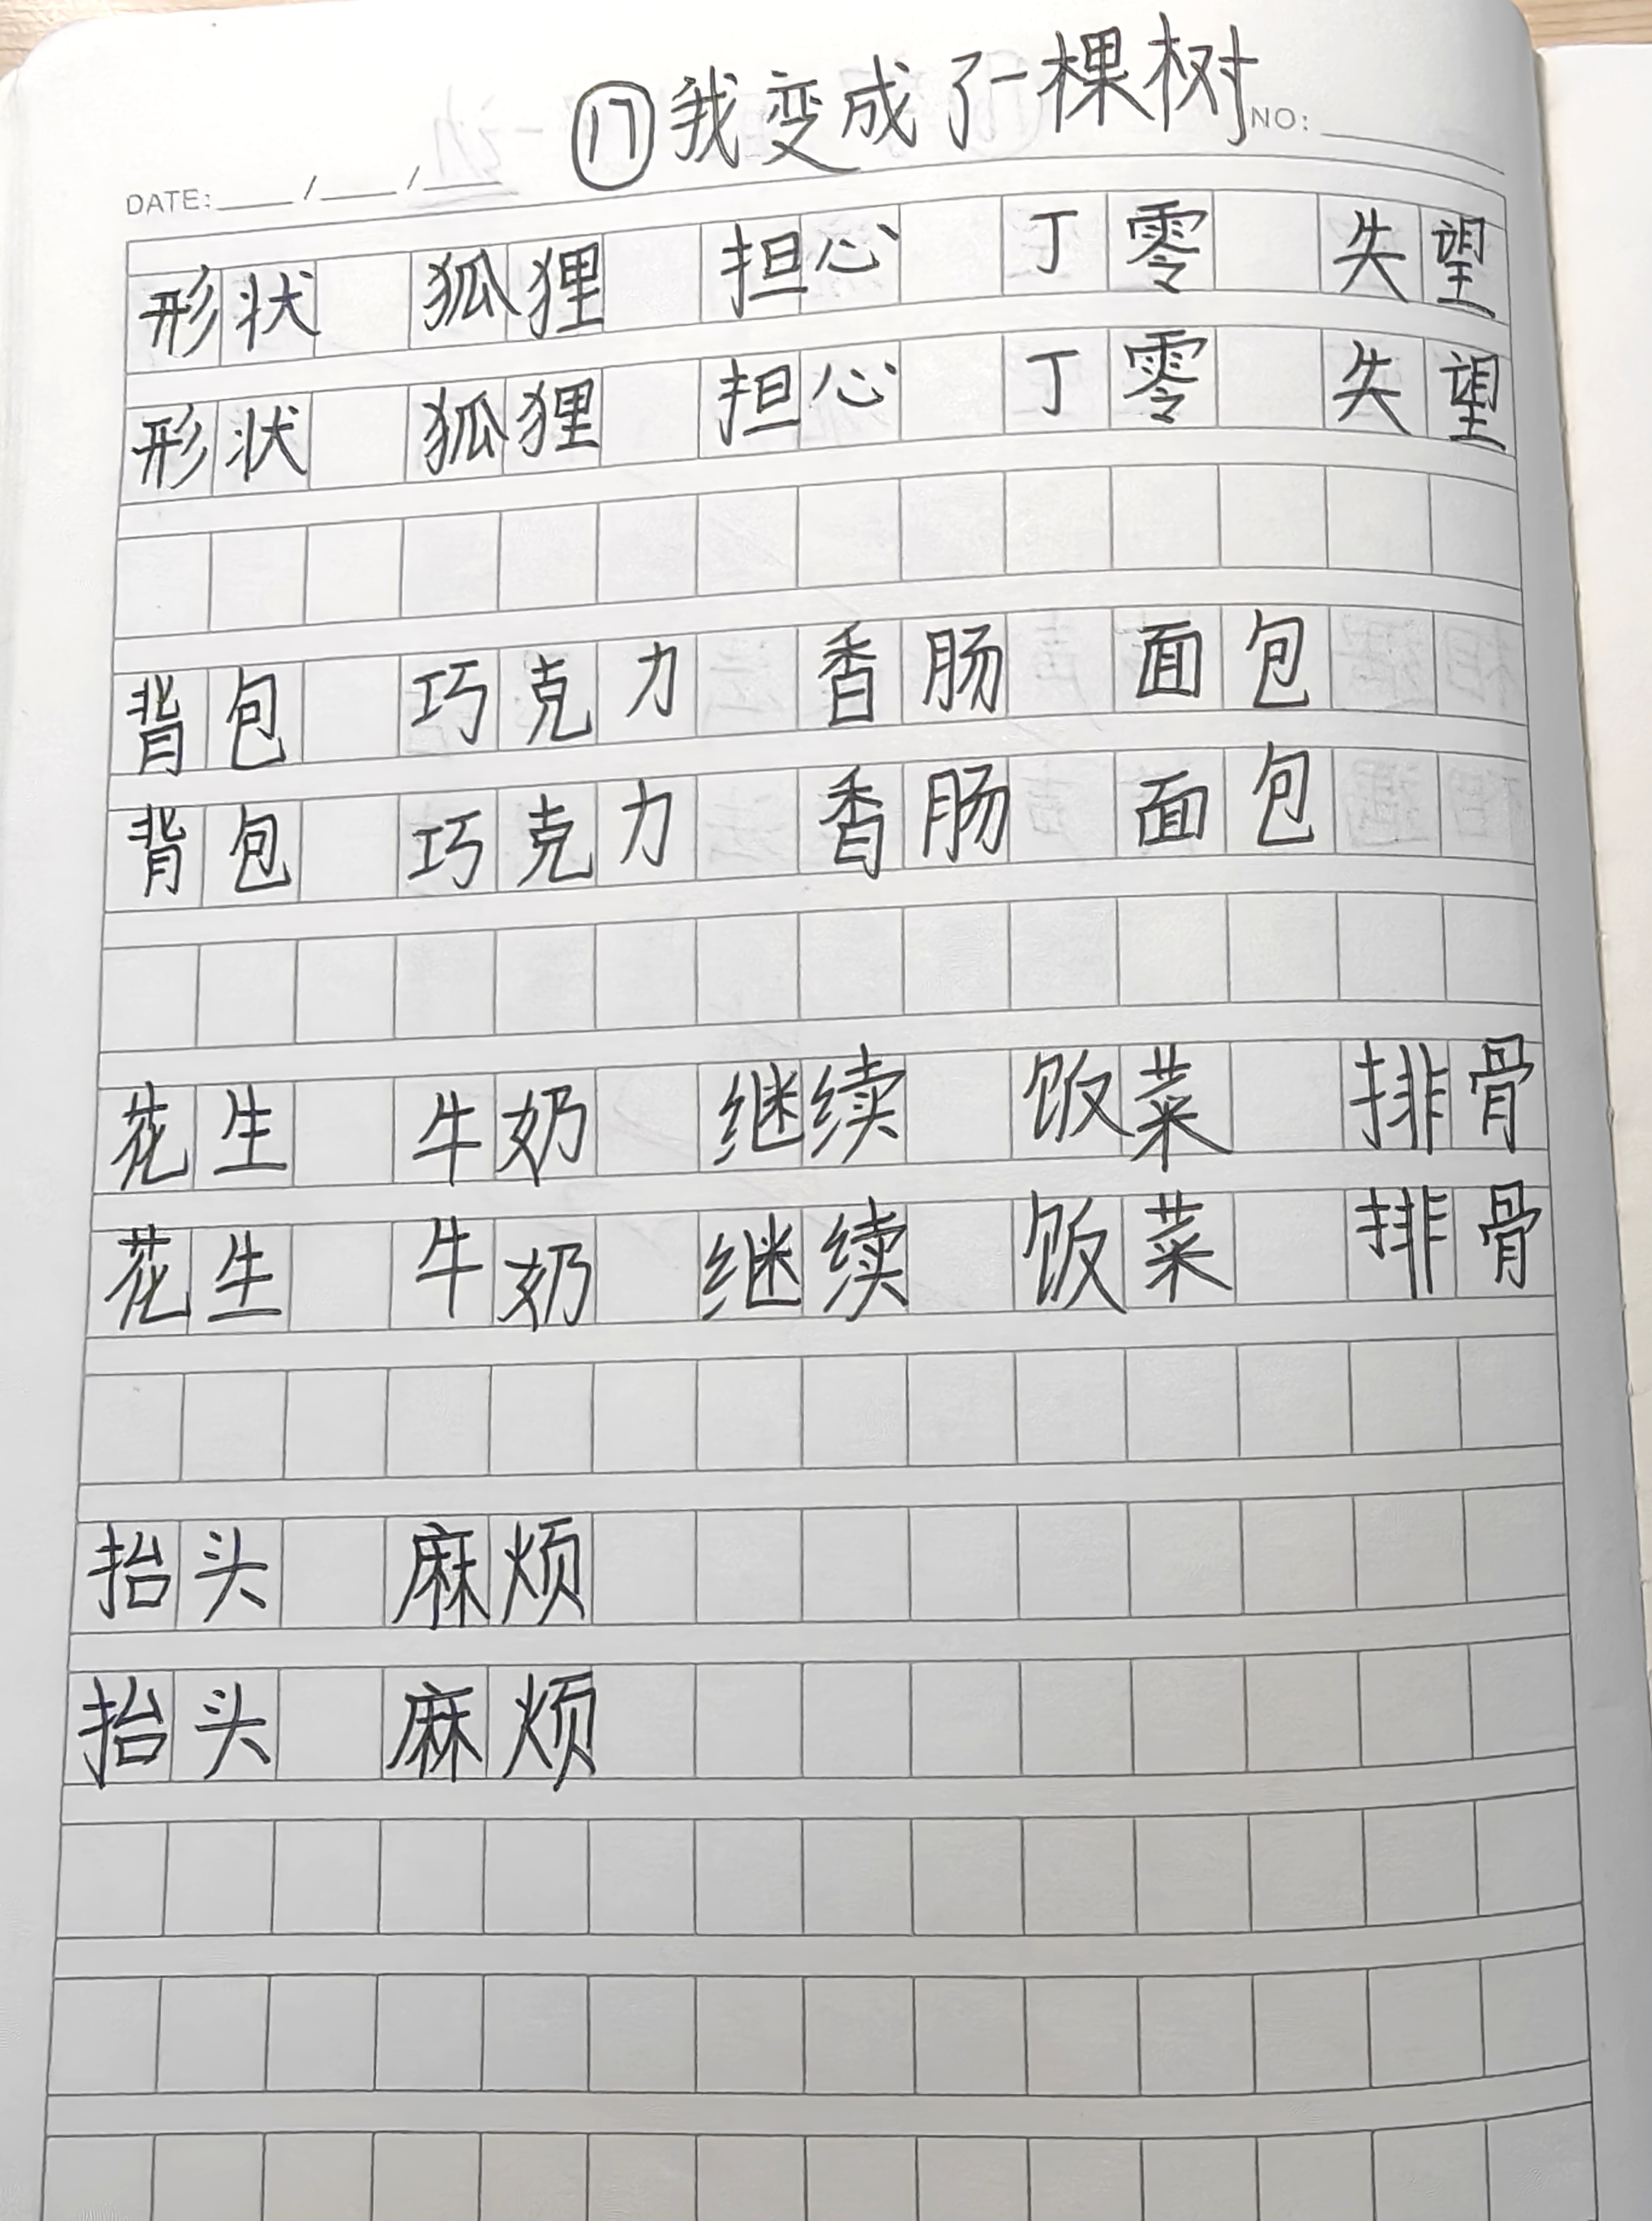 ⑰我变成了一棵树
DATE: / / NO:
形状 狐狸 担心 丁零 失望
形状 狐狸 担心 丁零 失望
背包 巧克力 香肠 面包
背包 巧克力 香肠 面包
花生 牛奶 继续 饭菜 排骨
花生 牛奶 继续 饭菜 排骨
抬头 麻烦
抬头 麻烦